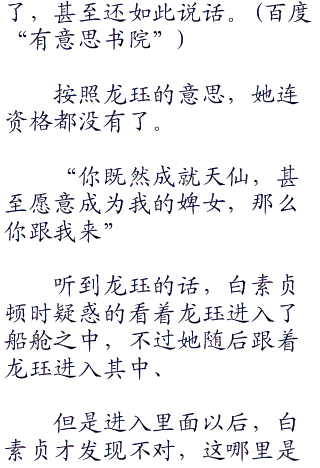 了，甚至还如此说话。(百度
“有意思书院”)
按照龙珏的意思，她连
资格都没有了。
“你既然成就天仙，甚
至愿意成为我的婢女，那么
你跟我来”
听到龙珏的话，白素贞
顿时疑惑的看着龙珏进入了
船舱之中，不过她随后跟着
龙珏进入其中、
但是进入里面以后，白
素贞才发现不对，这哪里是